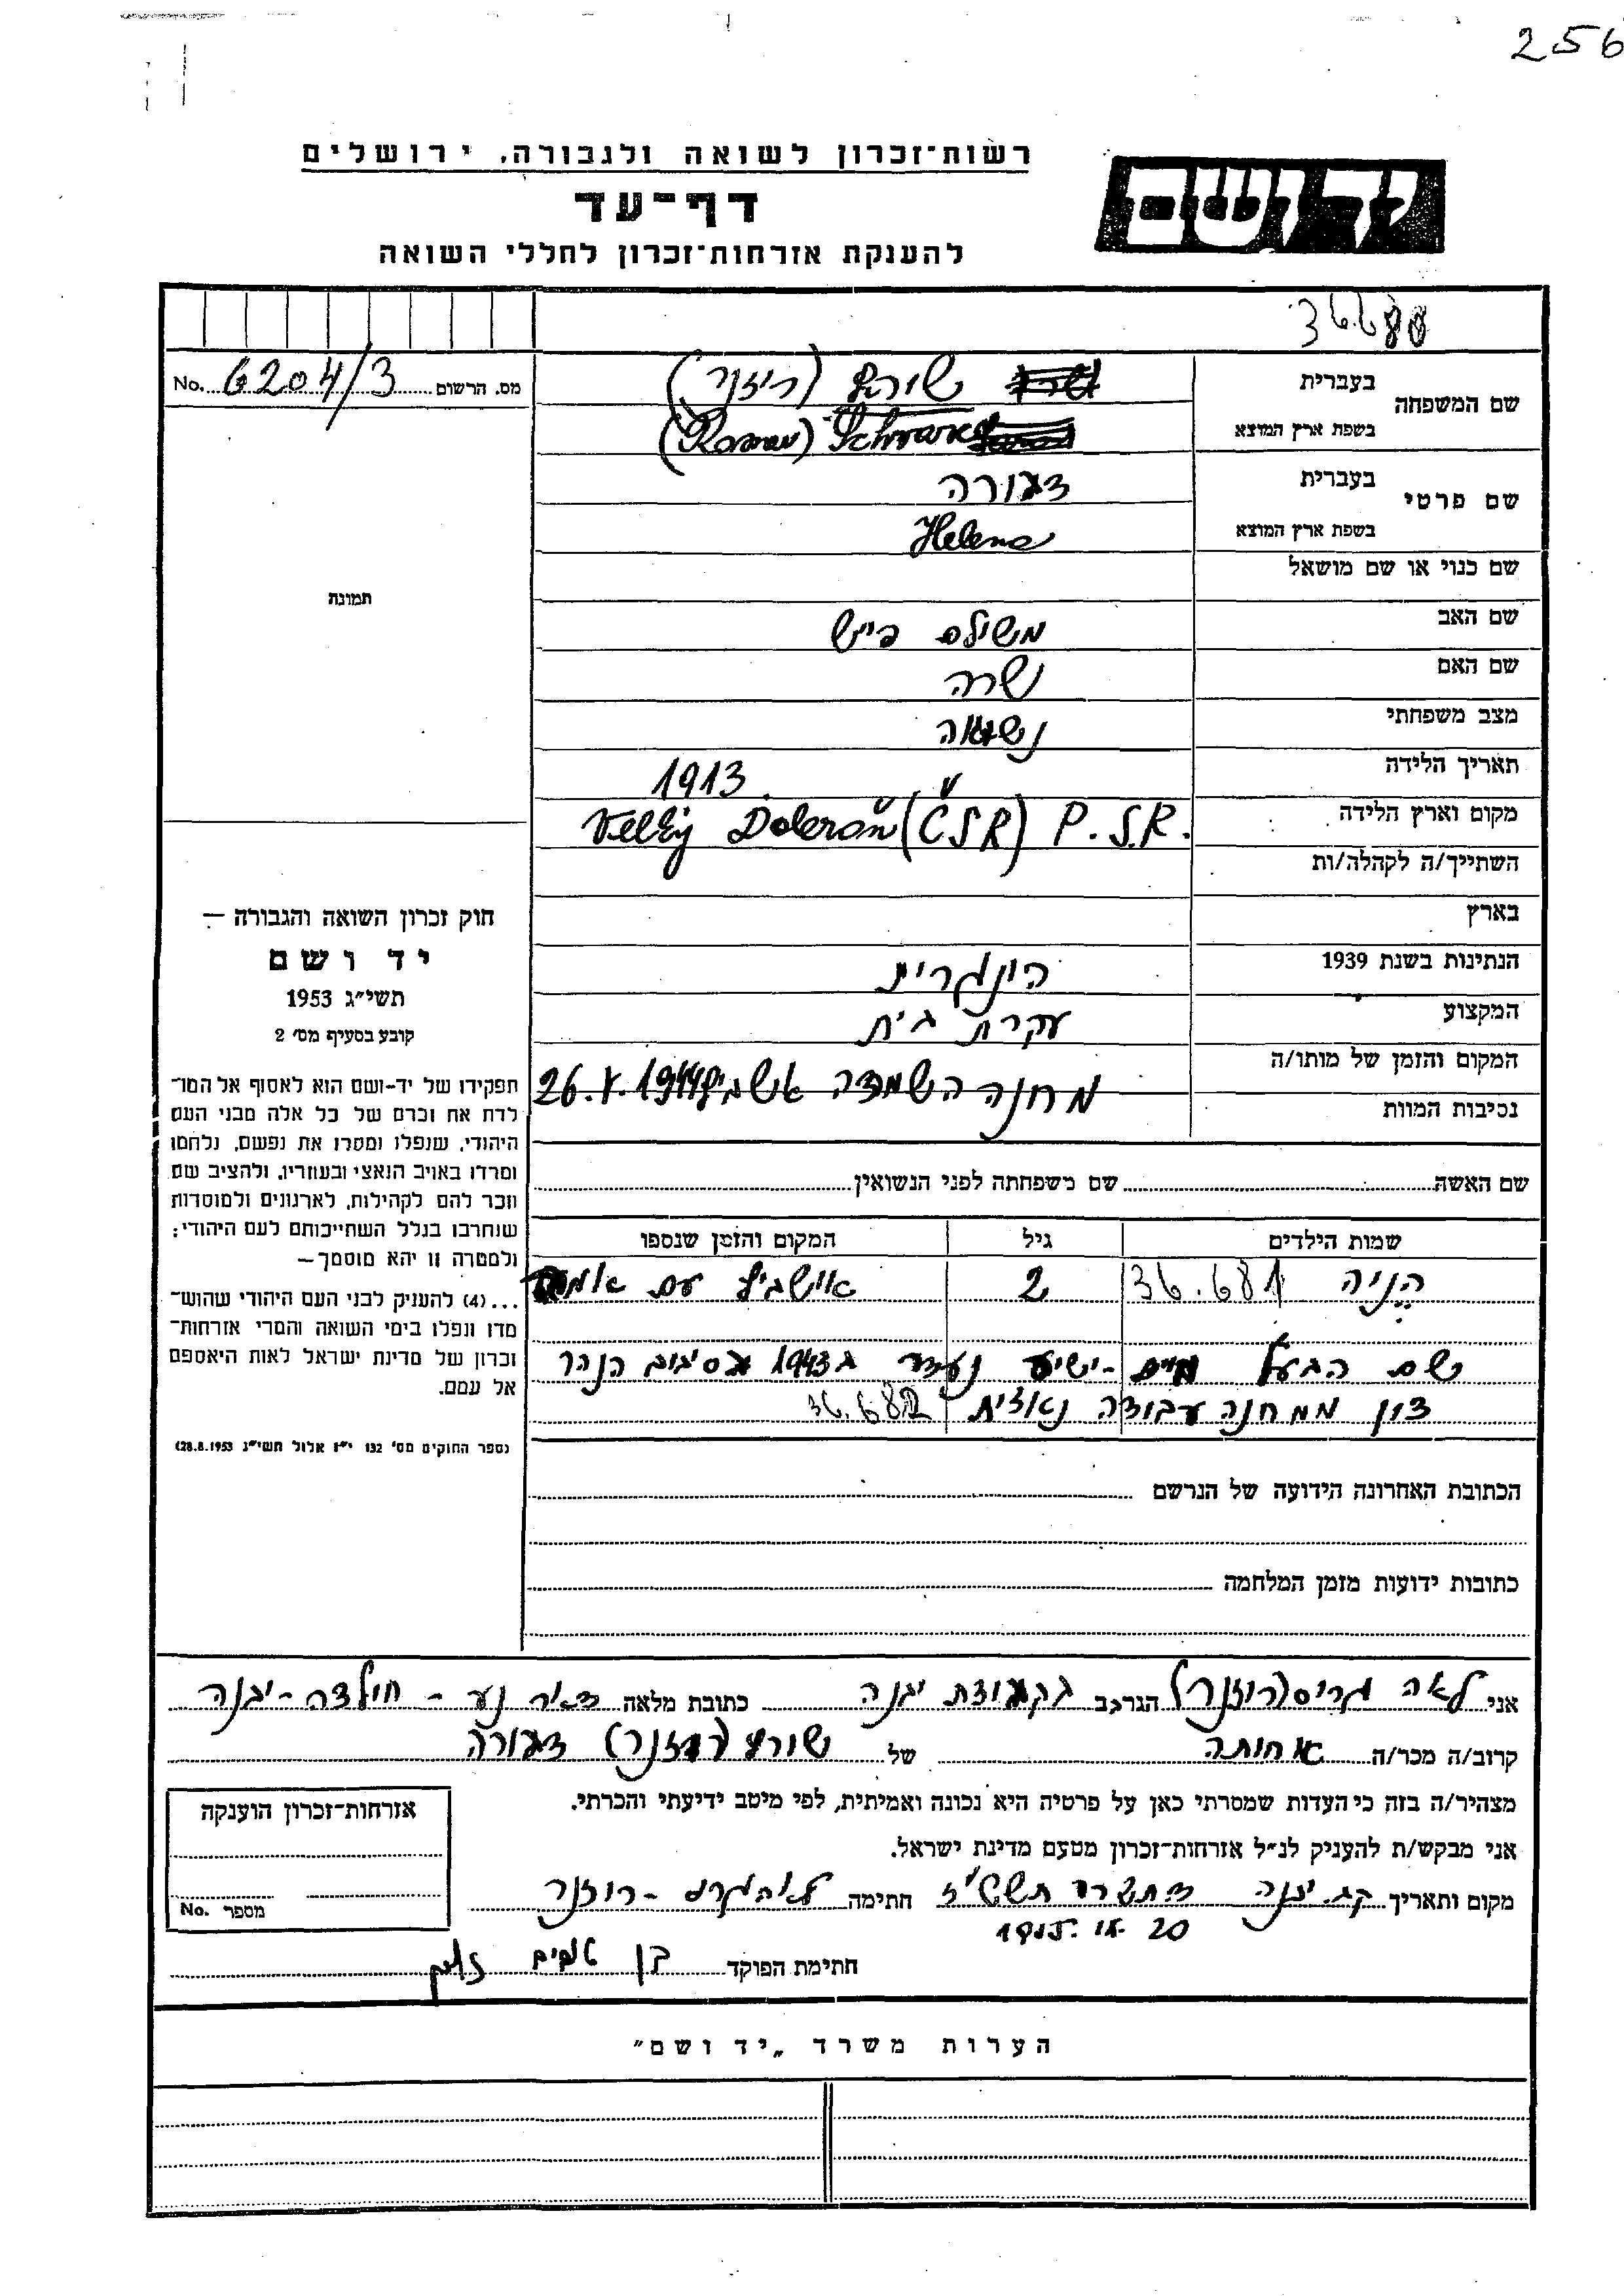 256
רשות־זכרון לשואה ולגבורה, ירושלים
יד ושם
דף־עד
להענקת אזרחות־זכרון לחללי השואה
36.680
מס. הרשום 6204/3 No.
שם המשפחה
בעברית שורץ (רוזנר)
בשפת ארץ המוצא Schwarcz (Rosner)
שם פרטי
בעברית דבורה
בשפת ארץ המוצא Helena
שם כנוי או שם מושאל
שם האב משולם פייש
שם האם שרה
מצב משפחתי נשואה
תאריך הלידה 1913
מקום וארץ הלידה Velký (ČSR) P.S.R.
השתייך/ה לקהלה/ות
בארץ
הנתינות בשנת 1939 הונגרית
המקצוע עקרת בית
המקום והזמן של מותו/ה מחנה השמדה אושביץ 26.V.1944
נסיבות המוות
תמונה
חוק זכרון השואה והגבורה –
יד ושם
תשי״ג 1953
קובע בסעיף מס׳ 2
תפקידו של יד-ושם הוא לאסוף אל המו־
לדת את זכרם של כל אלה מבני העם
היהודי, שנפלו ומסרו את נפשם, נלחמו
ומרדו באויב הנאצי ובעוזריו, ולהציב שם
וזכר להם לקהילות, לארגונים ולמוסדות
שנחרבו בגלל השתייכותם לעם היהודי;
ולמטרה זו יהא מוסמך–
...(4) להעניק לבני העם היהודי שהוש־
מדו ונפלו בימי השואה והמרי אזרחות־
זכרון של מדינת ישראל לאות היאספם
אל עמם.
(ספר החוקים מס׳ 132 י״ז אלול תשי״ג 28.8.1953)
שם האשה שם משפחתה לפני הנשואין
שמות הילדים גיל המקום והזמן שנספו
הניה 36.681 2 אושביץ עם אמה
שם הבעל ישיע נעדר ב 1943 בסיבוב הנהר
דון ממחנה עבודה נאצית 36.682
הכתובת האחרונה הידועה של הנרשם
כתובות ידועות מזמן המלחמה
אני לאה גריס (רוזנר) הגר בקבוצת יבנה כתובת מלאה דאר נע - חולדה - יבנה
קרוב/ה מכר/ה אחותה של שורץ (רוזנר) דבורה
מצהיר/ה בזה כי העדות שמסרתי כאן על פרטיה היא נכונה ואמיתית, לפי מיטב ידיעתי והכרתי.
אני מבקש/ת להעניק לנ״ל אזרחות־זכרון מטעם מדינת ישראל.
מקום ותאריך קב. יבנה חתימה לאה גריס - רוזנר
חתימת הפוקד בן
אזרחות־זכרון הוענקה
מספר No.
הערות משרד „יד ושם״